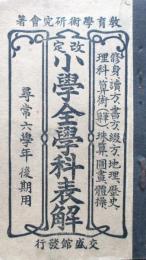 教育學術研究會著
修身、讀方、書方、綴方、地理、歷史、
理科、算術(筆)、珠算、圖畫、體操、
改定
小學全學科表解
尋常六學年後期用
交盛館發行